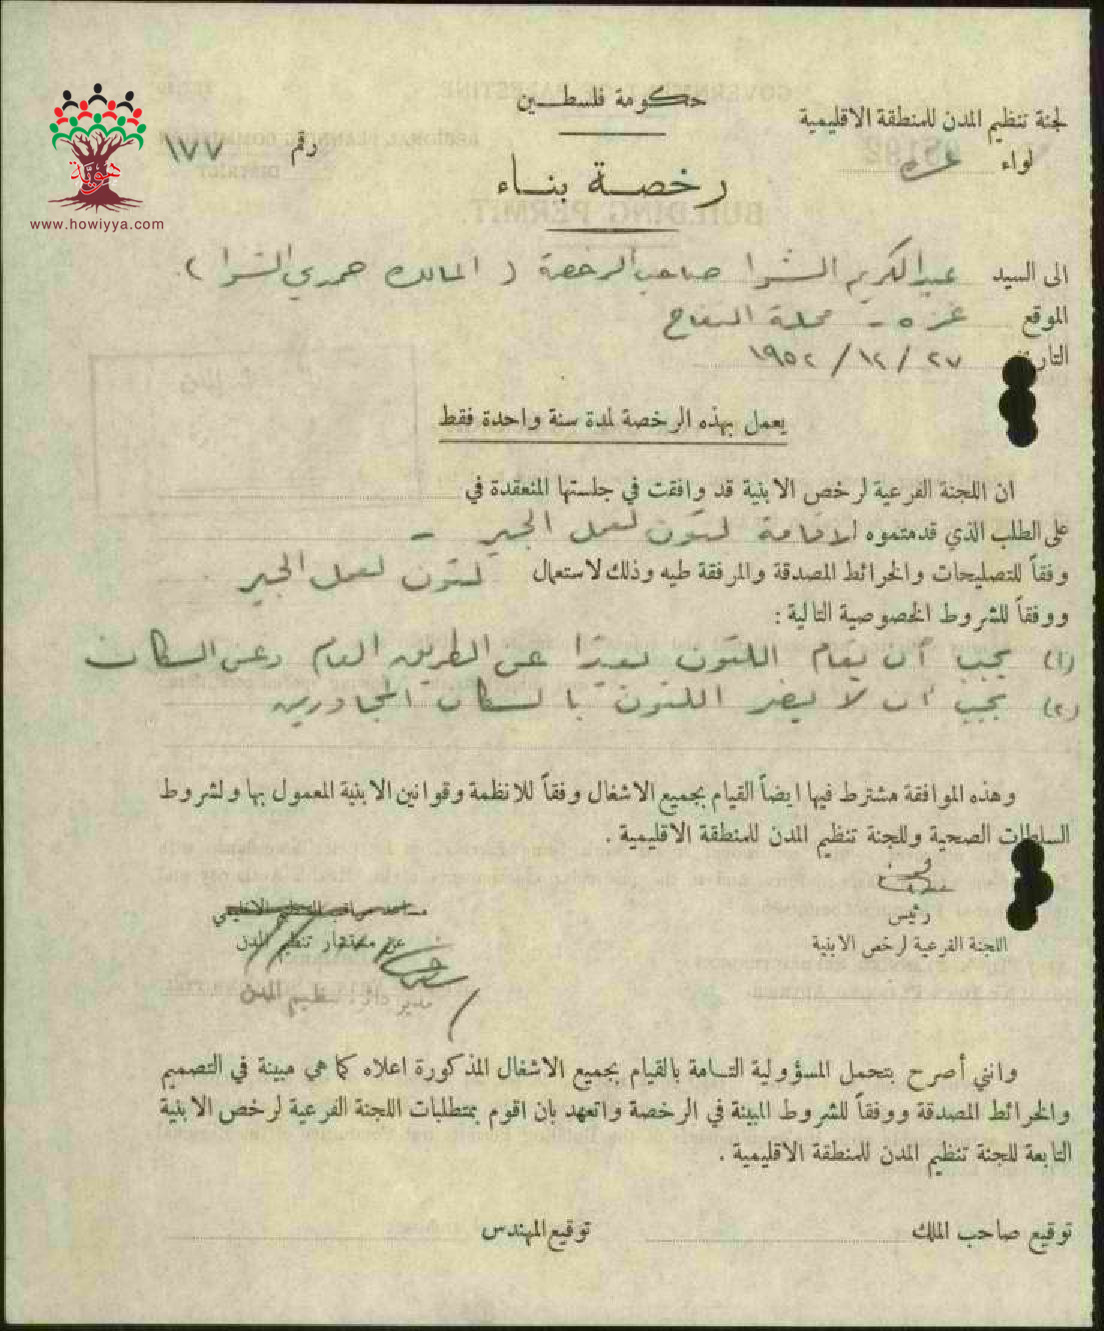 حكومة فلسطين
لجنة تنظيم المدن للمنطقة الاقليمية
لواء غزه
رقم ١٧٧
هوية
www.howiyya.com
رخصة بناء
الى السيد عبدالكريم الشوا صاحب الرخصة ( المالك حمدي الشوا )
الموقع غزه - محلة التفاح
التاريخ ٢٧ / ١٢ / ١٩٥٢
يعمل بهذه الرخصة لمدة سنة واحدة فقط
ان اللجنة الفرعية لرخص الابنية قد وافقت في جلستها المنعقدة في
على الطلب الذي قدمتموه لاقامة لتون لعمل الجير -
وفقاً للتصليحات والخرائط المصدقة والمرفقة طيه وذلك لاستعمال لتون لعمل الجير
ووفقاً للشروط الخصوصية التالية :
(١) يجب أن يقام اللتون بعيدا عن الطريق العام وعن السكان
(٢) يجب أن لا يضر اللتون بالسكان المجاورين
وهذه الموافقة مشترط فيها ايضاً القيام بجميع الاشغال وفقاً للانظمة وقوانين الابنية المعمول بها ولشروط
السلطات الصحية وللجنة تنظيم المدن للمنطقة الاقليمية .
رئيس
اللجنة الفرعية لرخص الابنية
عن مستشار تنظيم المدن
مدير دائرة تنظيم المدن
وانني أصرح بتحمل المسؤولية التامة بالقيام بجميع الاشغال المذكورة اعلاه كما هي مبينة في التصميم
والخرائط المصدقة ووفقاً للشروط المبينة في الرخصة واتعهد بان اقوم بمتطلبات اللجنة الفرعية لرخص الابنية
التابعة للجنة تنظيم المدن للمنطقة الاقليمية .
توقيع صاحب الملك
توقيع المهندس